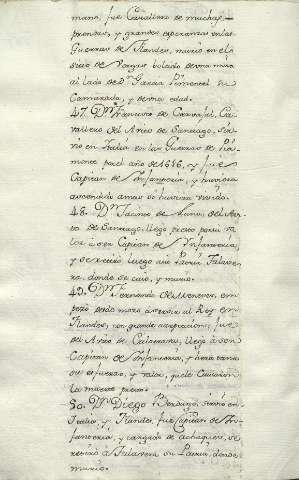 mano, fue Cavallero de muchas
prendas, y grandes esperanzas en las
Guerras de Flandes, murio en el
sitio de bolado de una mina
al lado de Dn. Garcia Pimentel su
Camarada, y de una edad.
47. Dn. Francisco de Carvajal, Ca-
vallero del Avito de Santiago, sir-
vio en Italia en las Guerras de Pia-
monte por el año de 1616, y fue
Capitan de Ynfanteria, y huviera
ascendido a mas si huviera vivido.
48. Dn. Jacinto de Luna del Avi-
to de Santiago, llego presto por su va-
lor a ser Capitan de Ynfanteria,
y se retiro luego a su Patria Talave-
ra, donde se caso, y murio.
49. Dn. Fernando de Meneses, em-
pezo desde mozo a servir al Rey en
Flandes, con grande aceptacion; fue
del Avito de Calatrava, llego a ser
Capitan de Ynfanteria, y
su esfuerzo, y valor, que le
la muerte presto.
50. Dn. Diego Verdugo, sirvio en
Italia, y Flandes, fue Capitan de Yn-
fanteria, y cargado de achaques, se
retiro a Talavera su Patria, donde
murio.